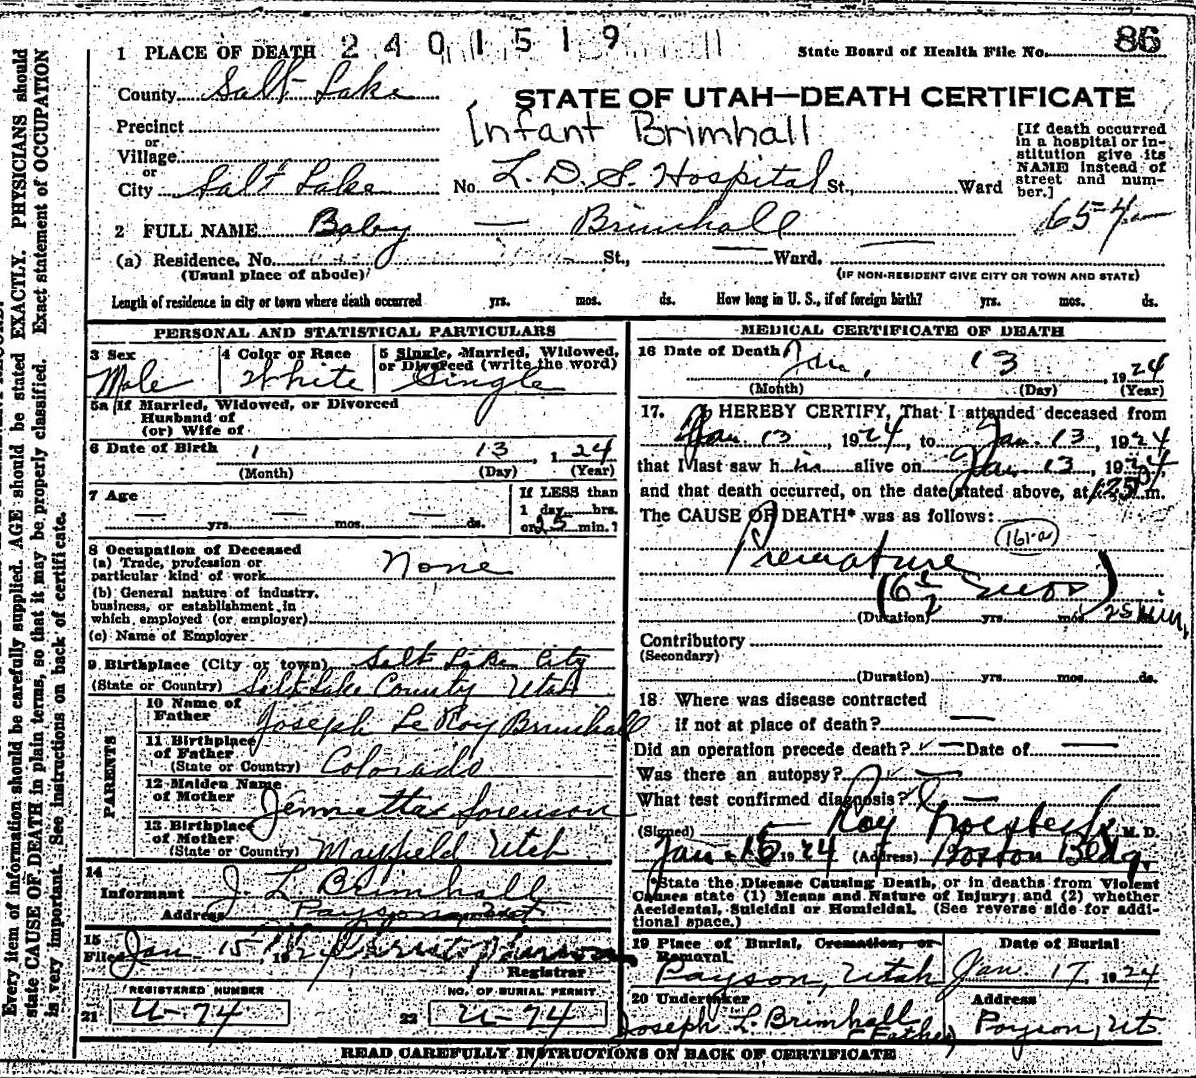 1 PLACE OF DEATH 2401519
State Board of Health File No. 86
County Salt Lake
STATE OF UTAH—DEATH CERTIFICATE
Precinct
Infant Brimhall
or
Village
or
City Salt Lake No. L. D. S. Hospital St., Ward
[If death occurred in a hospital or in-
stitution give its
NAME instead of
street and num-
ber.]
2 FULL NAME Baby — Brimhall
654
(a) Residence. No. St., Ward.
(Usual place of abode)
(IF NON-RESIDENT GIVE CITY OR TOWN AND STATE)
Length of residence in city or town where death occurred yrs. mos. ds. How long in U. S., if of foreign birth? yrs. mos. ds.
PERSONAL AND STATISTICAL PARTICULARS
3 Sex
Male
4 Color or Race
White
5 Single, Married, Widowed,
or Divorced (write the word)
Single
5a If Married, Widowed, or Divorced
Husband of
(or) Wife of
6 Date of Birth 1 13, 1 24
(Month) (Day) (Year)
7 Age — yrs. — mos. — ds.
If LESS than
1 day hrs.
or 25 min.?
8 Occupation of Deceased
(a) Trade, profession or
particular kind of work None
(b) General nature of industry,
business, or establishment in
which employed (or employer)
(c) Name of Employer
9 Birthplace (City or town) Salt Lake City
(State or Country) Salt Lake County Utah
PARENTS
10 Name of
Father Joseph Le Roy Brimhall
11 Birthplace
of Father
(State or Country) Colorado
12 Maiden Name
of Mother Jennetta Sorenson
13 Birthplace
of Mother
(State or Country) Mayfield Utah
14
Informant J L Brimhall
Address Payson, Ut
15
Filed Jan. 15 19
Registrar
REGISTERED NUMBER
21 U-74
NO. OF BURIAL PERMIT
22 U-74
MEDICAL CERTIFICATE OF DEATH
16 Date of Death Jan. 13, 1924
(Month) (Day) (Year)
17. I HEREBY CERTIFY, That I attended deceased from
Jan. 13, 1924, to Jan. 13, 1924
that I last saw him alive on Jan. 13, 1924
and that death occurred, on the date stated above, at m.
The CAUSE OF DEATH* was as follows:
(161-a)
Premature
(6 1/2 mos)
(Duration) yrs. mos. 25 Min.
Contributory
(Secondary)
(Duration) yrs. mos. ds.
18 Where was disease contracted
if not at place of death? —
Did an operation precede death? — Date of —
Was there an autopsy? —
What test confirmed diagnosis? —
(Signed) Roy M.D.
Jan. 15 1924 (Address) Boston Bldg.
*State the Disease Causing Death, or in deaths from Violent
Causes state (1) Means and Nature of Injury; and (2) whether
Accidental, Suicidal or Homicidal. (See reverse side for addi-
tional space.)
19 Place of Burial, Cremation, or
Removal
Payson, Utah
Date of Burial
Jan. 17, 1924
20 Undertaker
Joseph L. Brimhall
(Father)
Address
Payson, Ut.
READ CAREFULLY INSTRUCTIONS ON BACK OF CERTIFICATE
Every item of information should be carefully supplied. AGE should be stated EXACTLY. PHYSICIANS should
state CAUSE OF DEATH in plain terms, so that it may be properly classified. Exact statement of OCCUPATION
is very important. See instructions on back of certificate.